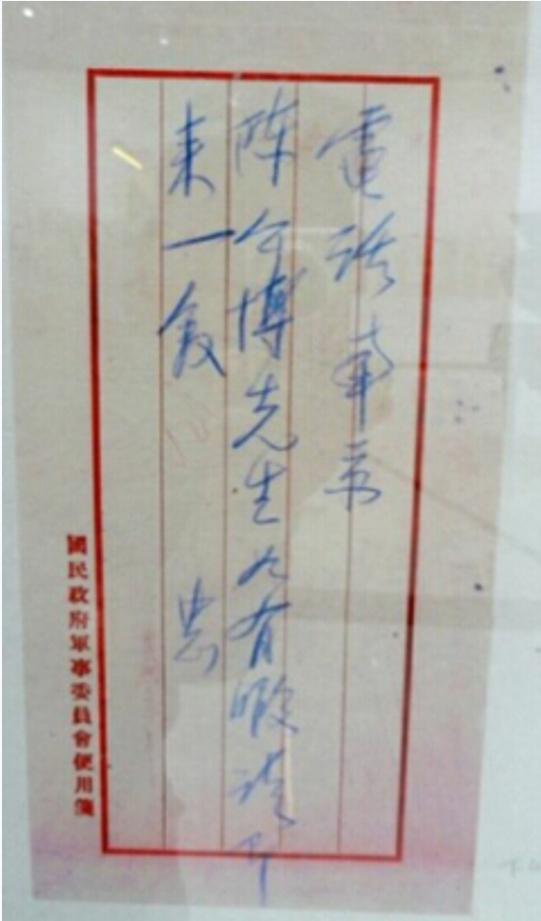 電話南京
陈公博先生如有暇請即
来一敘
國民政府軍事委員會便用箋